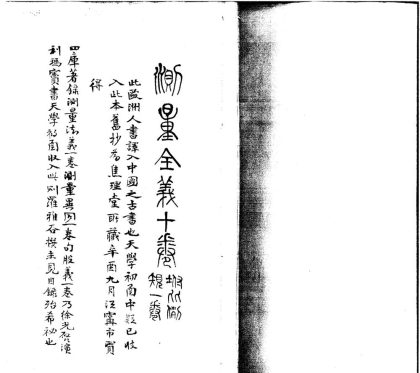 測量全義十卷
坿比例
規一卷
此歐洲人書譯入中國之古書也天學初函中疑已收
入此本舊抄為焦理堂所藏辛酉九月江甯市買
得
四庫著錄測量法義一卷測量異同一卷句股義一卷乃徐光啟演
利瑪竇書天學初函收入此則羅雅谷撰未見目錄殆希也